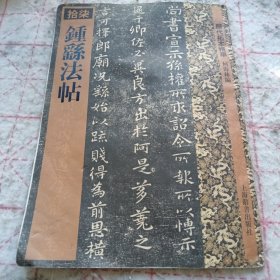 拾柒
鍾繇法帖
尚書宣示孫權所求詔令所報所以博示
逮于卿佐必冀良方出於阿是芻蕘之
言可擇郎廟況繇始以疏賤得為前恩橫